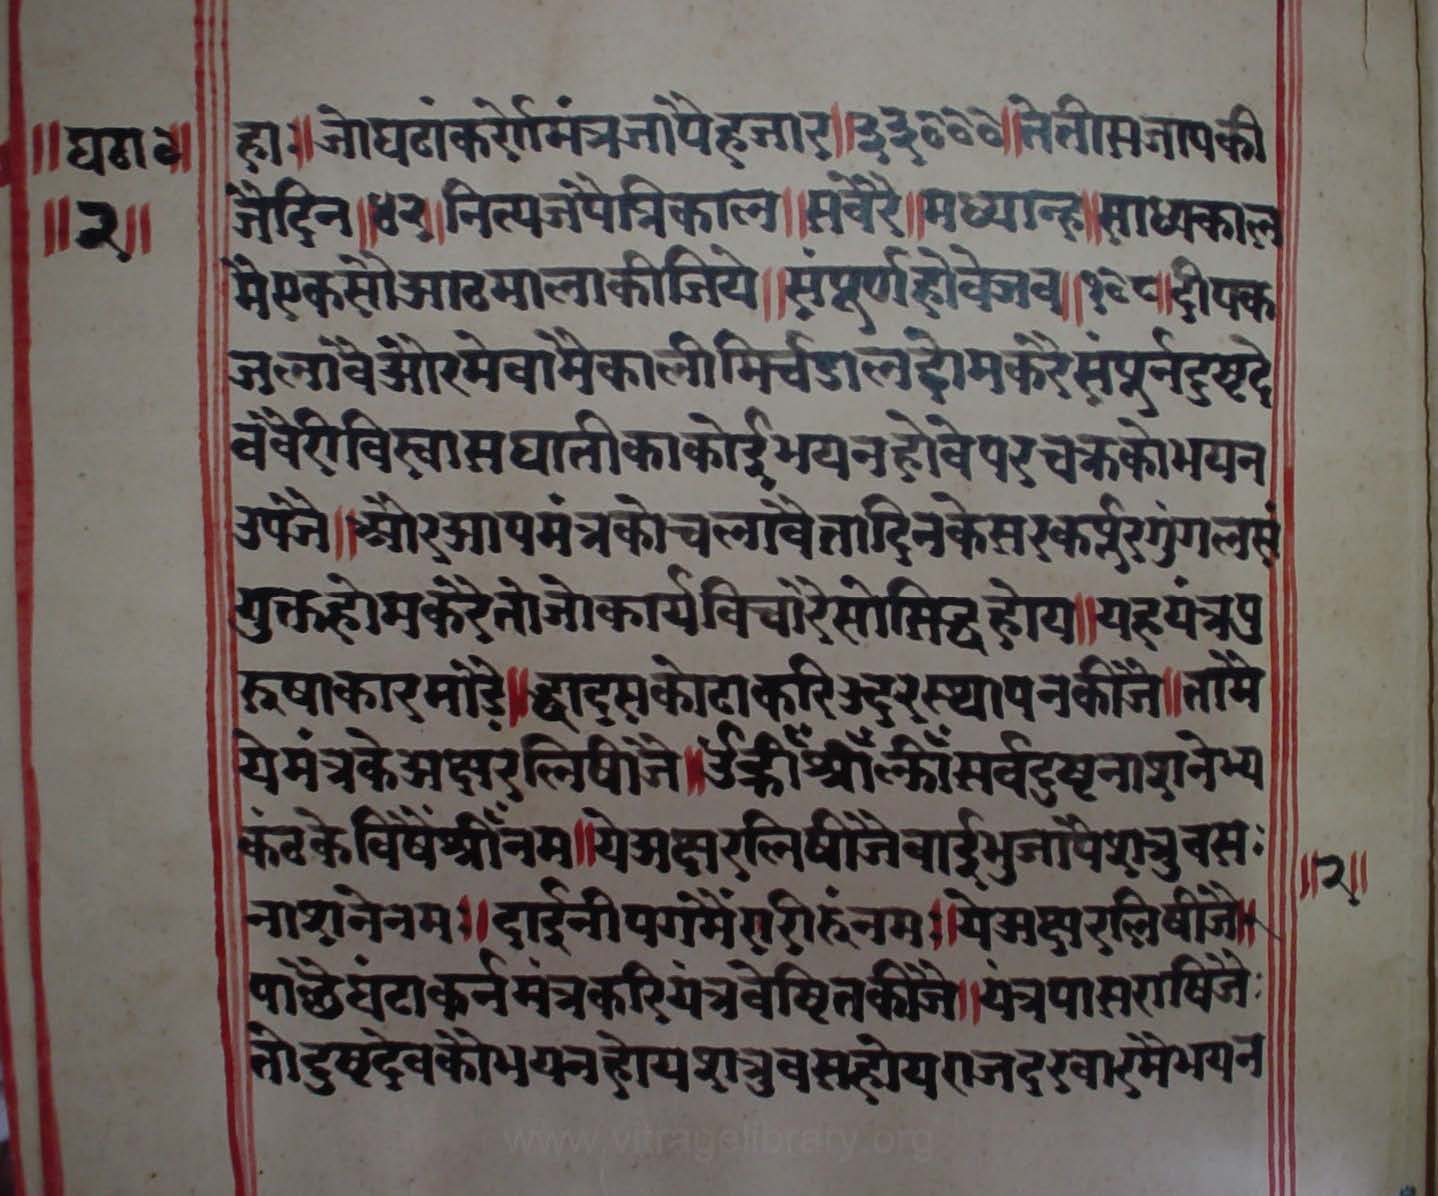 ॥घटा०॥
॥२॥
हाः॥जोघटांकर्रोमंत्रजापैहजार॥३३०००॥तेतीसजापकी
जैदिन॥४२॥नित्यजपैत्रिकाल॥सवेरै॥मध्यान्ह॥साध्यकाल
मैएकसौआठमालाकीजिये॥संपूर्णहोवेजब॥१०८॥दीपक
जलावैऔरमेवामैकालीमिर्चडालहोमकरैसंपूर्नदुष्टदे
वबैरीविस्वासघातीकाकोईभयनहोवेपरचक्रकोभयन
उपजै॥औरआपमंत्रकोचलावैतादिनकेसरकर्पूरगुंगलसं
युक्तहोमकरैतोजोकार्यविचारैसोसिद्धहोय॥यहयंत्रपु
रूषाकारमांडै॥द्वादसकोटाकरिउदरस्थापनकीजै॥तामै
येमंत्रकेअक्षरलिषीजै॥ॐह्रीँश्रीँक्लीँसर्वदुष्टनाशनेभ्य
कंठकेविषैंश्रीँनम॥येअक्षरलिषीजैबाईभुजापैशत्रुवसः
नाशनेनमः॥दाईनीपगमैंरारीहुंनमः॥येअक्षरलिषीजै॥
पाछैघंटाकर्नमंत्रकरियंत्रवेष्टितकीजै॥यंत्रपासराषिजैः
तोदुष्टदेवकौभयनहोयशत्रुवसहोयराजदरबारमैभयन
॥२॥
www.vitragelibrary.org